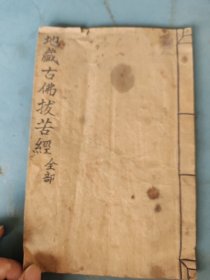 地藏古佛拔苦經全部